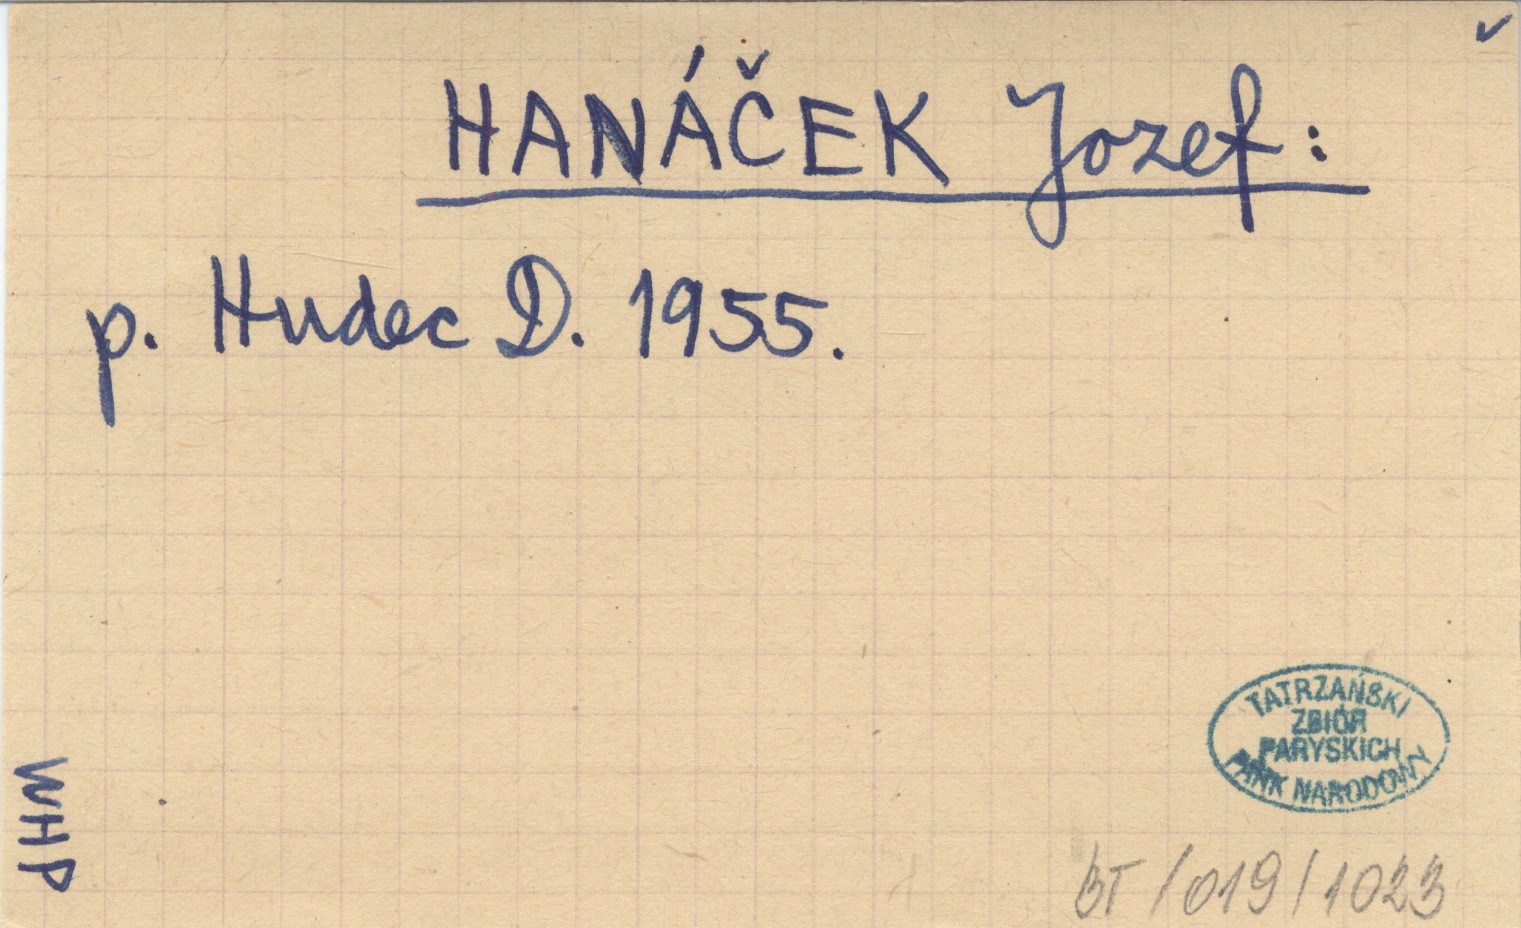 HANÁČEK Jozef:
p. Hudec D. 1955.
WHP
TATRZAŃSKI
ZBIÓR
PARYSKICH
PARK NARODOWY
BT/019/1023